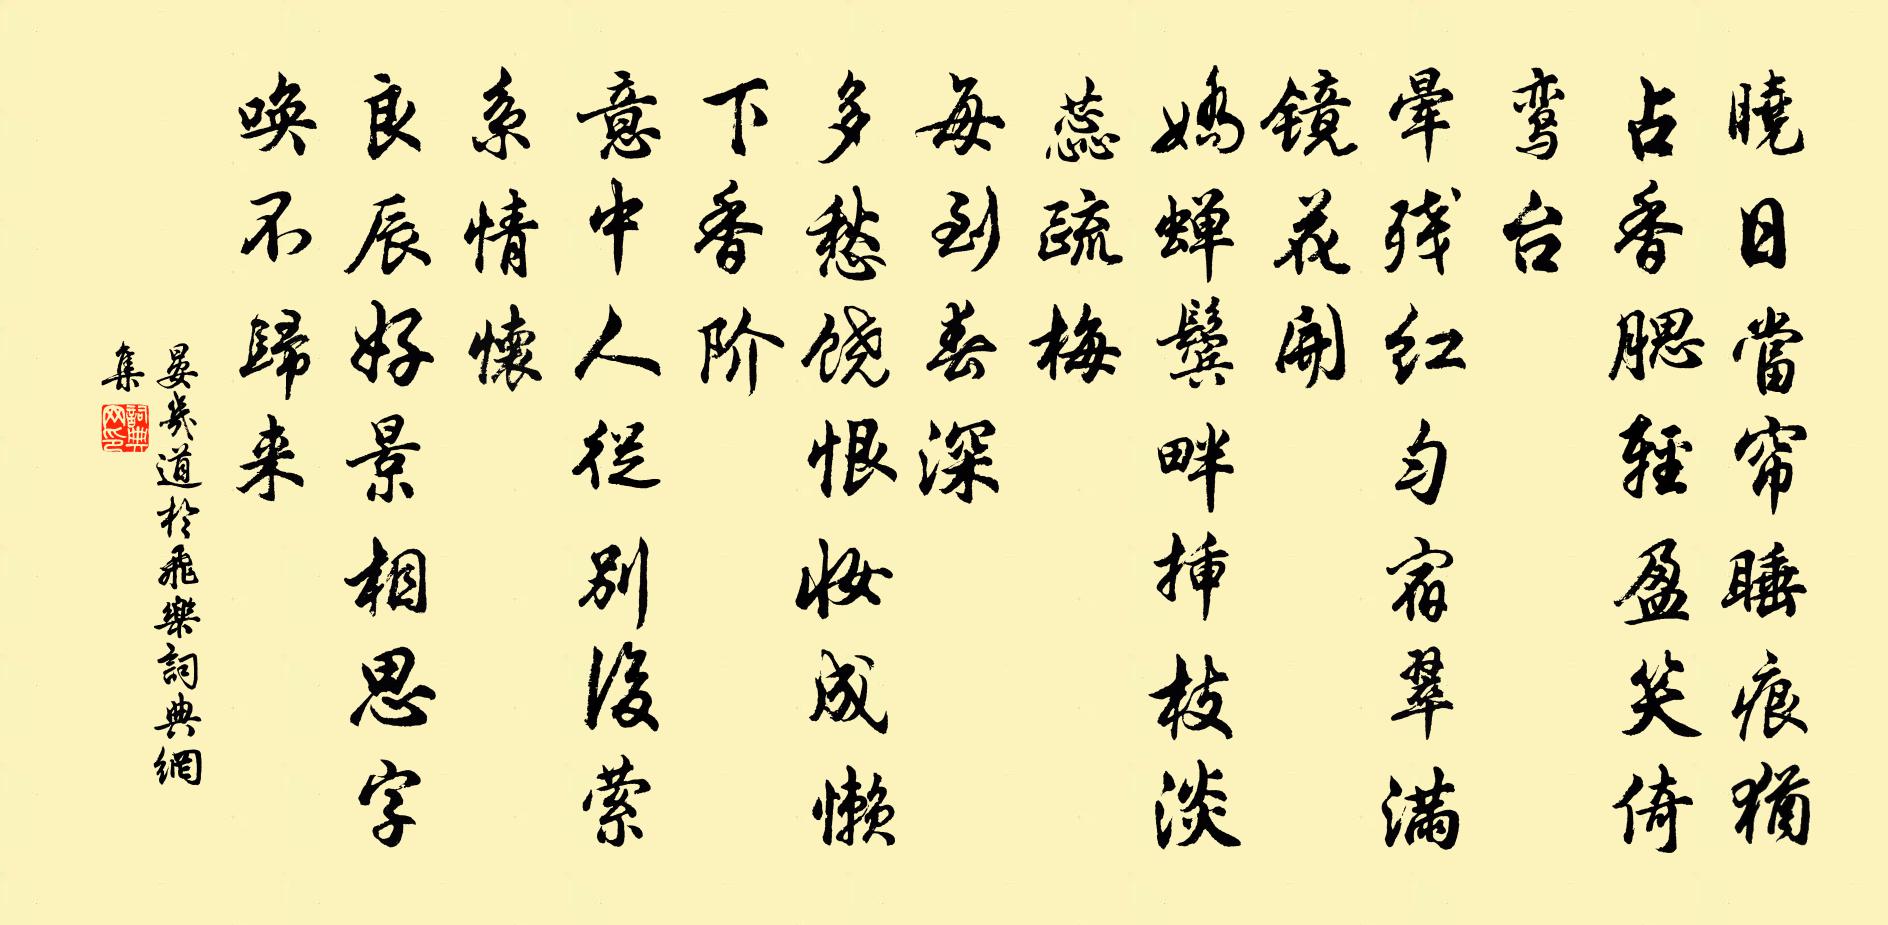 曉日當帘睡痕猶
占香腮輕盈笑倚
鸾台
晕残红匀宿翠满
镜花開
嬌蝉鬓畔挿枝淡
蕊疏梅
每到春深
多愁饶恨妆成懒
下香阶
意中人從别後萦
系情懷
良辰好景相思字
唤不歸来
晏幾道於飛樂詞典網
集
詞典网印